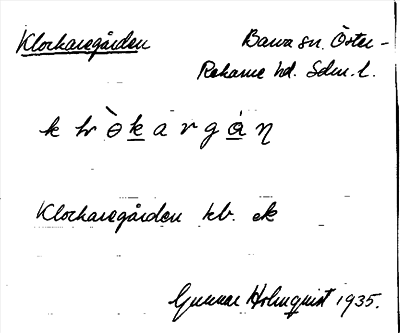 Klockaregården Barva sn. Öster-
Rekarne hd. Sdm. l.
Klockaregården kb. ek
Gunnar Holmquist 1935.